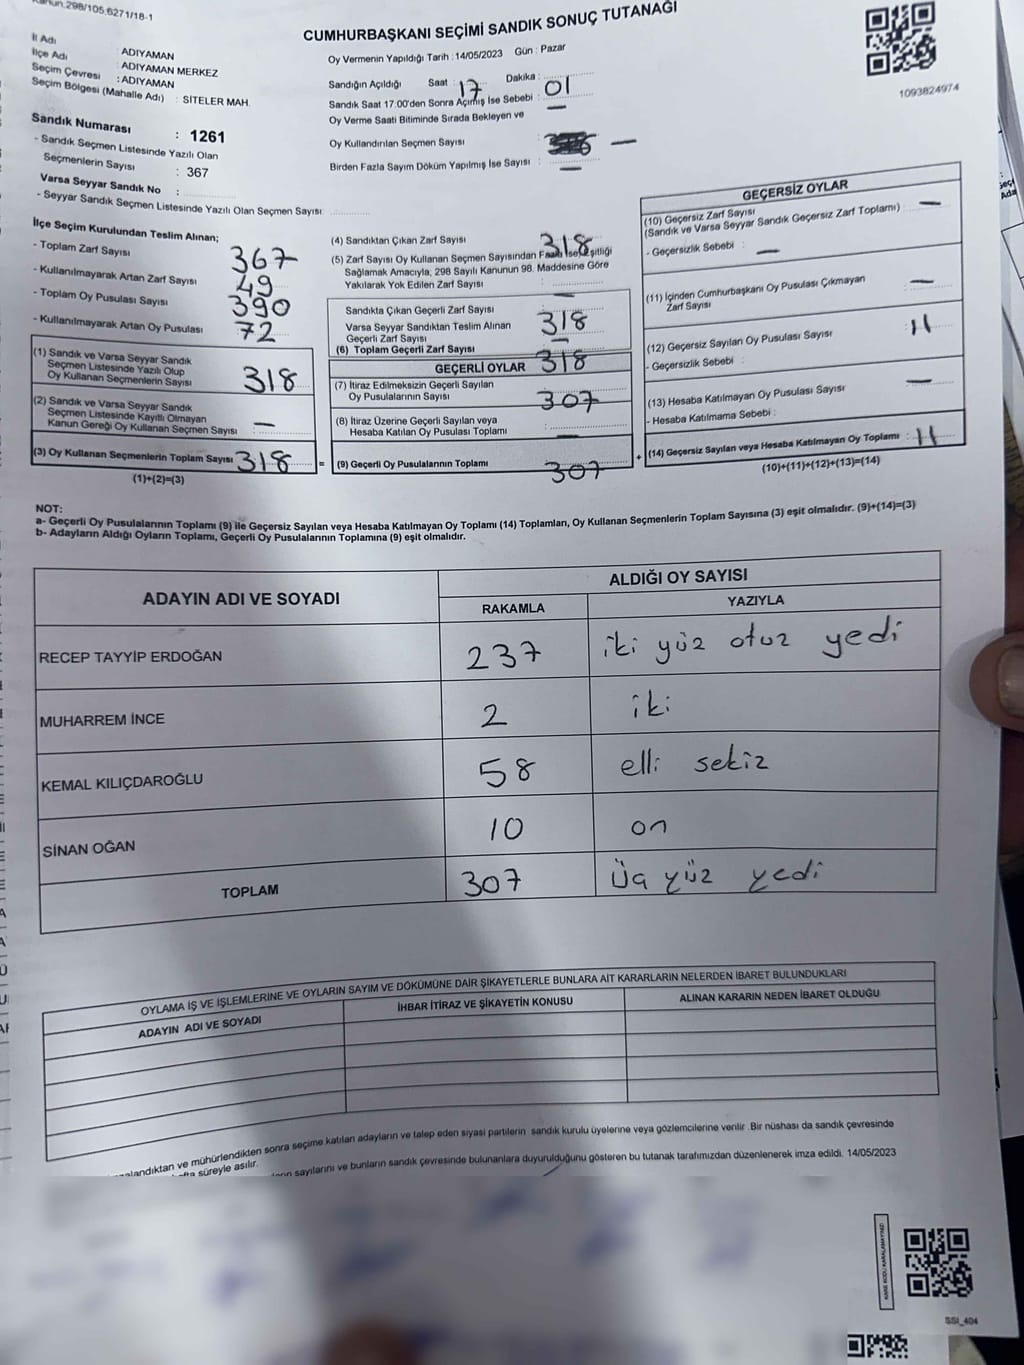 Kanun.298/105,6271/18-1
CUMHURBAŞKANI SEÇİMİ SANDIK SONUÇ TUTANAĞI
İl Adı : ADIYAMAN
İlçe Adı : ADIYAMAN MERKEZ
Seçim Çevresi : ADIYAMAN
Seçim Bölgesi (Mahalle Adı) : SİTELER MAH.
Sandık Numarası : 1261
- Sandık Seçmen Listesinde Yazılı Olan
Seçmenlerin Sayısı : 367
Varsa Seyyar Sandık No :
- Seyyar Sandık Seçmen Listesinde Yazılı Olan Seçmen Sayısı:
Oy Vermenin Yapıldığı Tarih : 14/05/2023 Gün : Pazar
Sandığın Açıldığı Saat : 17 Dakika : 01
Sandık Saat 17.00'den Sonra Açılmış İse Sebebi : —
Oy Verme Saati Bitiminde Sırada Bekleyen ve
Oy Kullandırılan Seçmen Sayısı : —
Birden Fazla Sayım Döküm Yapılmış İse Sayısı : —
1093824974
İlçe Seçim Kurulundan Teslim Alınan;
- Toplam Zarf Sayısı 367
- Kullanılmayarak Artan Zarf Sayısı 49
- Toplam Oy Pusulası Sayısı 390
- Kullanılmayarak Artan Oy Pusulası 72
(1) Sandık ve Varsa Seyyar Sandık
Seçmen Listesinde Yazılı Olup
Oy Kullanan Seçmenlerin Sayısı 318
(2) Sandık ve Varsa Seyyar Sandık
Seçmen Listesinde Kayıtlı Olmayan
Kanun Gereği Oy Kullanan Seçmen Sayısı : —
(3) Oy Kullanan Seçmenlerin Toplam Sayısı 318
(1)+(2)=(3)
=
(4) Sandıktan Çıkan Zarf Sayısı 318
(5) Zarf Sayısı Oy Kullanan Seçmen Sayısından Fazla ise, Eşitliği
Sağlamak Amacıyla, 298 Sayılı Kanunun 98. Maddesine Göre
Yakılarak Yok Edilen Zarf Sayısı : —
Sandıkta Çıkan Geçerli Zarf Sayısı 318
Varsa Seyyar Sandıktan Teslim Alınan
Geçerli Zarf Sayısı : —
(6) Toplam Geçerli Zarf Sayısı 318
GEÇERLİ OYLAR
(7) İtiraz Edilmeksizin Geçerli Sayılan
Oy Pusulalarının Sayısı 307
(8) İtiraz Üzerine Geçerli Sayılan veya
Hesaba Katılan Oy Pusulası Toplamı : —
(9) Geçerli Oy Pusulalarının Toplamı 307
+
GEÇERSİZ OYLAR
(10) Geçersiz Zarf Sayısı
(Sandık ve Varsa Seyyar Sandık Geçersiz Zarf Toplamı) : —
- Geçersizlik Sebebi : —
(11) İçinden Cumhurbaşkanı Oy Pusulası Çıkmayan
Zarf Sayısı —
(12) Geçersiz Sayılan Oy Pusulası Sayısı : 11
- Geçersizlik Sebebi :
(13) Hesaba Katılmayan Oy Pusulası Sayısı —
- Hesaba Katılmama Sebebi :
(14) Geçersiz Sayılan veya Hesaba Katılmayan Oy Toplamı : 11
(10)+(11)+(12)+(13)=(14)
NOT:
a- Geçerli Oy Pusulalarının Toplamı (9) ile Geçersiz Sayılan veya Hesaba Katılmayan Oy Toplamı (14) Toplamları, Oy Kullanan Seçmenlerin Toplam Sayısına (3) eşit olmalıdır. (9)+(14)=(3)
b- Adayların Aldığı Oyların Toplamı, Geçerli Oy Pusulalarının Toplamına (9) eşit olmalıdır.
ADAYIN ADI VE SOYADI
ALDIĞI OY SAYISI
RAKAMLA YAZIYLA
RECEP TAYYİP ERDOĞAN 237 iki yüz otuz yedi
MUHARREM İNCE 2 iki
KEMAL KILIÇDAROĞLU 58 elli sekiz
SİNAN OĞAN 10 on
TOPLAM 307 Üç yüz yedi
OYLAMA İŞ VE İŞLEMLERİNE VE OYLARIN SAYIM VE DÖKÜMÜNE DAİR ŞİKAYETLERLE BUNLARA AİT KARARLARIN NELERDEN İBARET BULUNDUKLARI
ADAYIN ADI VE SOYADI İHBAR İTİRAZ VE ŞİKAYETİN KONUSU ALINAN KARARIN NEDEN İBARET OLDUĞU
ve mühürlendikten sonra seçime katılan adayların ve talep eden siyasi partilerin sandık kurulu üyelerine veya gözlemcilerine verilir. Bir nüshası da sandık çevresinde
süreyle asılır.
sayılarını ve bunların sandık çevresinde bulunanlara duyurulduğunu gösteren bu tutanak tarafımızdan düzenlenerek imza edildi. 14/05/2023
KARE KODU KARALAMAYINIZ!
SSI_404